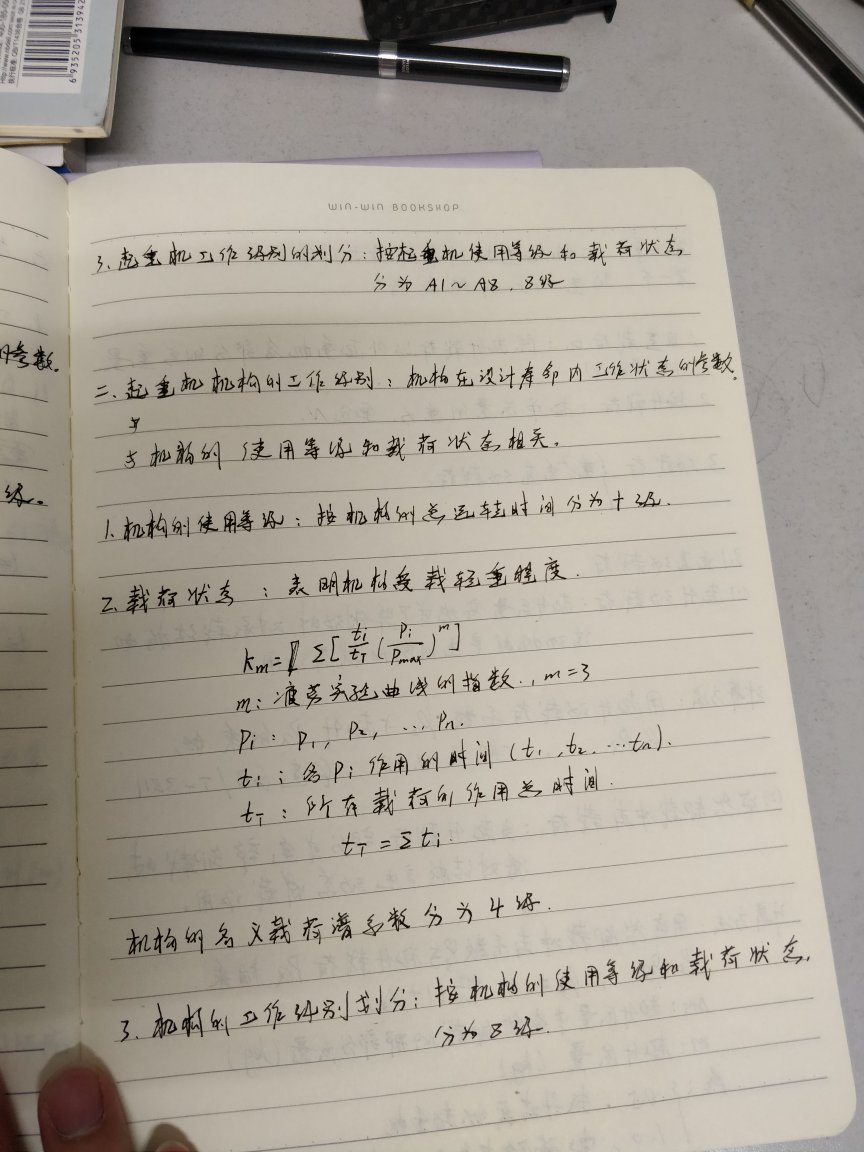 http://www.n
执行标准:QB/T1438
6 935205 313942
WIN-WIN BOOKSHOP
3、起重机工作级别的划分：按起重机使用等级和载荷状态
分为 A1～A8，8级
的参数。
二、起重机机构的工作级别：机构在设计寿命内工作状态的参数。
与
与机构的使用等级和载荷状态相关。
级。
1、机构的使用等级：按机构的总运转时间分为十级．
2、载荷状态：表明机构受载轻重程度．
Km = Σ[ti/tT (Pi/Pmax)^m]
m：疲劳实验曲线的指数．，m=3
Pi：P1, P2, …Pn.
ti：各Pi作用的时间(t1, t2, …tn).
tT：所有载荷的作用总时间．
tT = Σti.
机构的名义载荷谱系数分为4级．
3、机构的工作级别划分：按机构的使用等级和载荷状态．
分为8级．